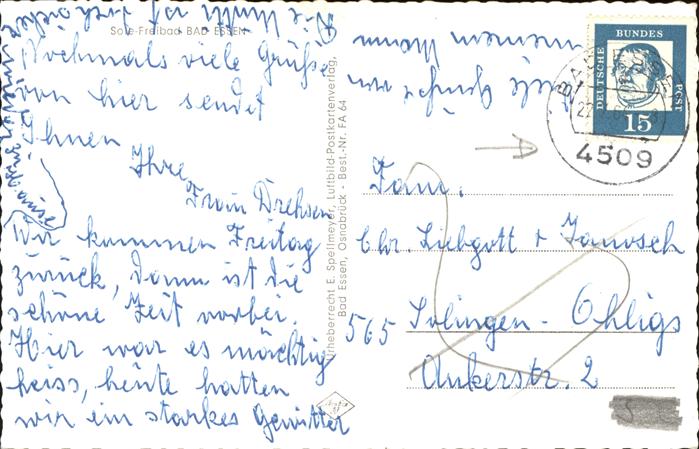 Sole-Freibad BAD ESSEN
Nochmals viele Grüße
von hier sendet
Ihnen
Ihre
Frau Drehsen
Wir kommen Freitag
zurück, dann ist die
schöne Zeit vorbei.
Hier war es mächtig
heiss, heute hatten
wir ein starkes Gewitter
Die Mutti ist
Viele Grüße von
meinem Mann
Urheberrecht E. Spellmeyer, Luftbild-Postkartenverlag,
Bad Essen, Osnabrück - Best.-Nr. FA 64
DEUTSCHE
BUNDES
POST
15
BAD ESSEN
4509
A
Fam.
Chr. Liebgott + Janosch
565 Solingen - Ohligs
Ankerstr. 2
5